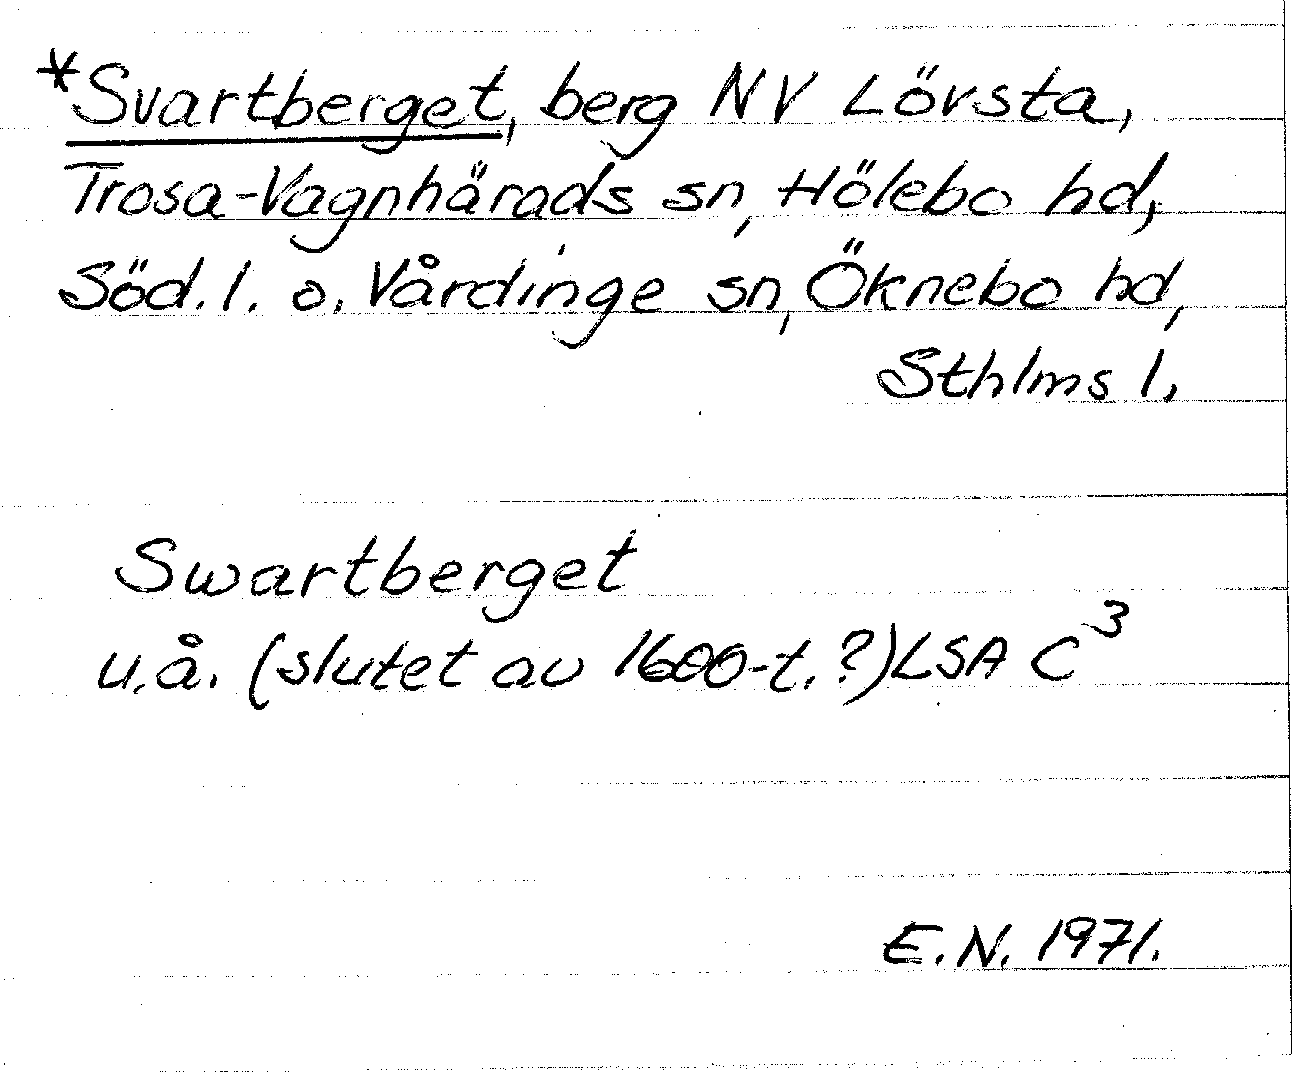 *Svartberget, berg NV Lövsta,
Trosa-Vagnhärads sn, Hölebo hd,
Söd. l. o. Vårdinge sn, Öknebo hd,
Sthlms l.
Swartberget
u.å. (slutet av 1600-t.?) LSA C³
E.N. 1971.